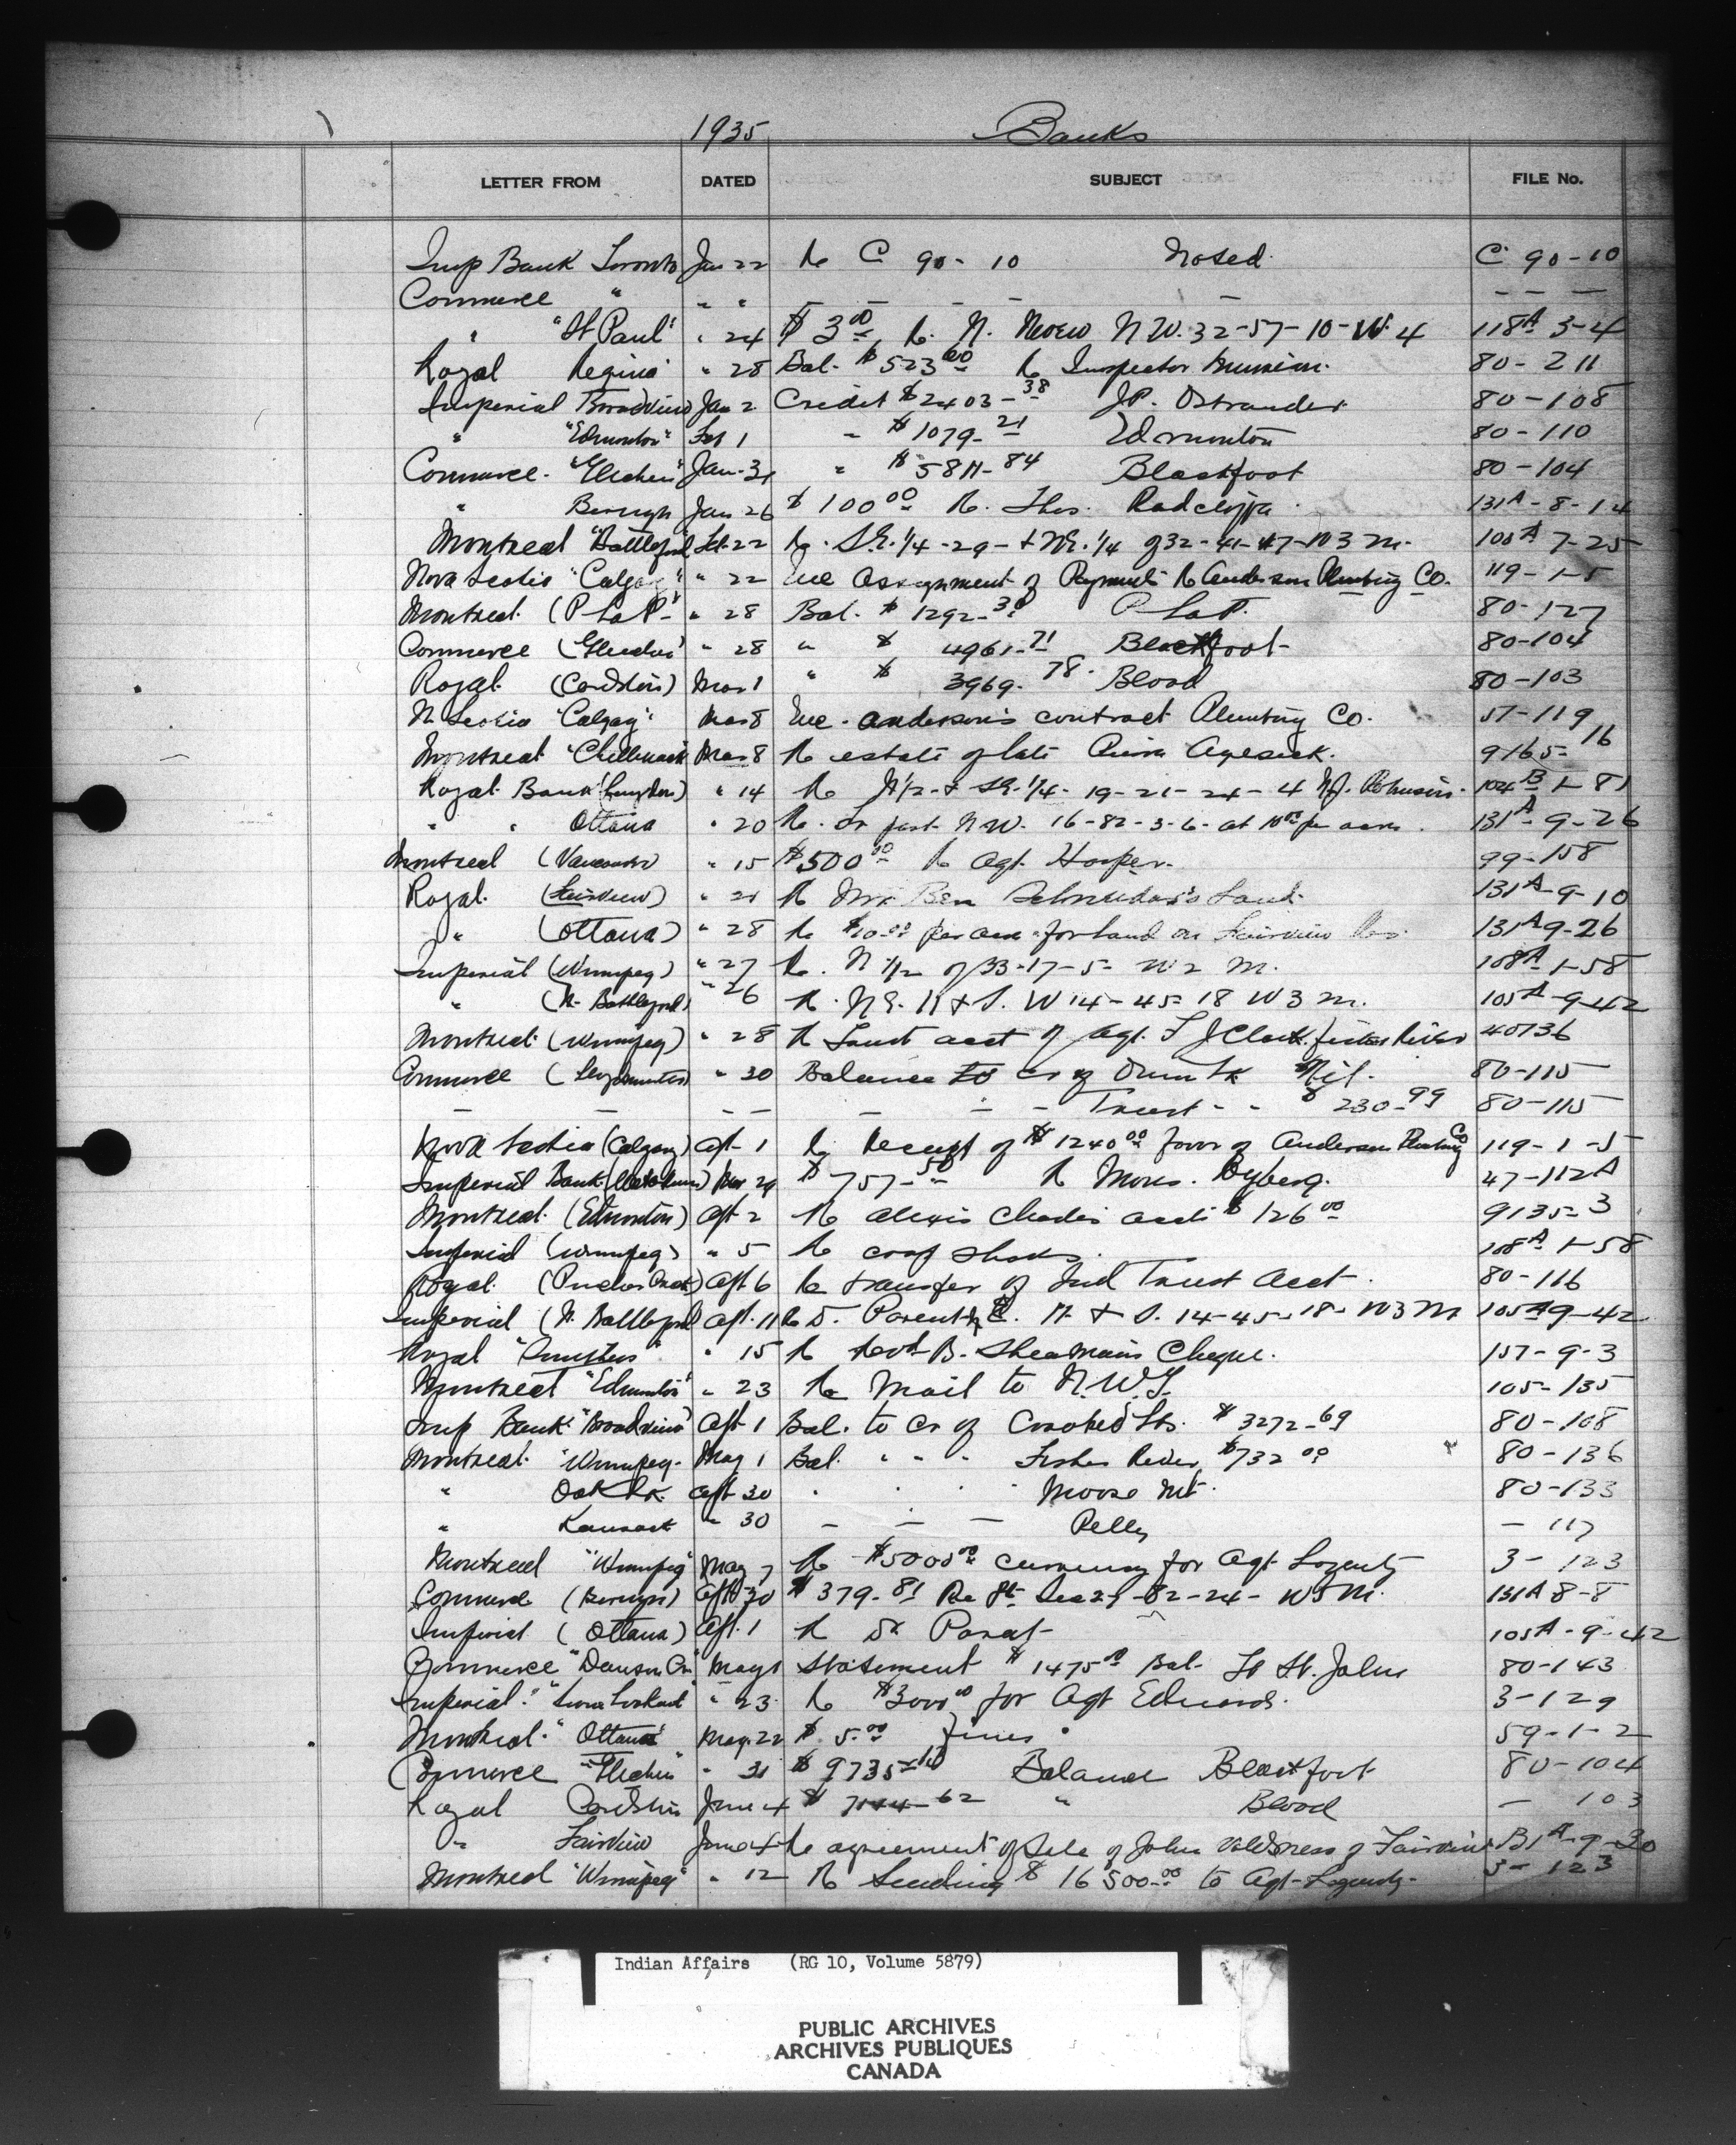 1935 Banks
LETTER FROM DATED SUBJECT FILE No.
Imp Bank Toronto Jan 22 Re C 90 - 10 Noted C 90-10
Commerce " " " — — — — — — — —
" "St Paul" " 24 $ 3 00 Re. N. NW. 32-57-10-W. 4 118A 3-4
Royal Regina " 28 Bal. $ 523 00 Re Inspector 80-211
Imperial Broadview Jan 2 Credit $2403-38 J.P. Ostrander 80-108
" "Edmonton" Feb 1 " $ 1079-21 Edmonton 80-110
Commerce. "Gleichen" Jan-31 " $ 5811-84 Blackfoot 80-104
" Berwyn Jan 26 $ 100 00 Re. Thos. Radcliffe 131A-8-14
Montreal "Battleford" Feb-22 Re. S.E. 1/4 -29- + N.E. 1/4 of 32-41-17-W3 M. 105A 7-25
Nova Scotia "Calgary" " 22 Enc Assignment of Payments Re Anderson Plumbing Co. 119-1-5
Montreal (P La P" " 28 Bal. $ 1292-30 P La P. 80-127
Commerce (Gleichen) " 28 " $ 4961-71 Blackfoot 80-104
Royal. (Cardston) Mar 1 " $ 3969-78. Blood 80-103
N Scotia "Calgary" Mar 8 Enc. Anderson's contract Plumbing Co. 57-119
Montreal "Chilliwack" Mar 8 Re estate of late 9165-16
Royal Bank (Langdon) " 14 Re N1/2 + SE. 1/4 - 19-21-24-4 104B 1-81
" " Ottawa " 20 Re. N.W. 16-82-3-6- at 10 00 per acre. 131A-9-26
Montreal (Vancouver) " 15 $500 00 Re Agt. Hooper. 99-158
Royal. (Fairview) " 21 Re Mr Ben Land. 131A-9-10
" (Ottawa) " 28 Re $10.00 per acre for land on Fairview Res. 131A 9-26
Imperial (Winnipeg) " 27 Re. N 1/2 of 33-17-5- W2 M. 108A-1-58
" (N. Battleford) " 26 Re. N.E. 11 + S. W 14-45-18 W3 M. 105A-9-42
Montreal. (Winnipeg) " 28 Re Trust acct of Agt. F J Clark. Fisher River 40136
Commerce ( " 30 Balance to cr of Nil. 80-115
— — — — — — — Trust " " $ 230-99 80-115
Nova Scotia (Calgary) Apt. 1 Re Receipt of $1240 00 favor of Anderson Plumbing Co 119-1-5
Imperial Bank (Wetaskiwin) Mar 29 $ 757-50 Re Moses. Ryberg. 47-112A
Montreal. (Edmonton) Apt-2 Re Alexis Chados acct $ 126 00 9135-3
Imperial (Winnipeg) " 5 Re crop shares. 108A 1-58
Royal. (Pincher Creek) Apt 6 Re transfer of Ind Trust Acct. 80-116
Imperial (N. Battleford Apt. 11 Re D. N. + S. 14-45-18- W3 M 105A 9-42
Royal " " 15 Re B. Cheque. 157-9-3
Montreal "Edmonton" " 23 Re Mail to N.W.T. 105-135
Imp Bank "Broadview" Apt 1 Bal. to Cr of Crooked Lks. $ 3272-69 80-108
Montreal. "Winnipeg- May 1 Bal. " " " Fisher River $732 00 80-136
" Oak Lk. Apt-30 " " " " Moose Mt. 80-133
" Kamsack " 30 — — — Pelly — 117
Montreal "Winnipeg" May 7 Re $5000 00 currency for Agt. 3-123
Commerce (Berwyn) Apt 30 $ 379.81 Re Pt- Sec 29-82-24- W5M. 131A 8-8
Imperial ( Ottawa) Apt. 1 Re 105A-9-42
Commerce "Dawson Cr" May 1 Statement $ 1475 Bal- Ft St. John 80-143
Imperial. "Sioux Lookout" " 23. Re $3000 00 for Agt Edwards. 3-129
Montreal. "Ottawa" May. 22 $ 5.00 fines 59-1-2
Commerce "Gleichen" " 31 $ 9735-10 Balance Blackfoot 80-104
Royal Cardston June 4 $ 7144-62 " Blood — 103
" Fairview June 4 Re agreement of Sale of John of Fairview 131A-9-30
Montreal "Winnipeg" " 12 Re Sending $ 16 500.00 to Agt- 3-123
Indian Affairs (RG 10, Volume 5879)
PUBLIC ARCHIVES
ARCHIVES PUBLIQUES
CANADA